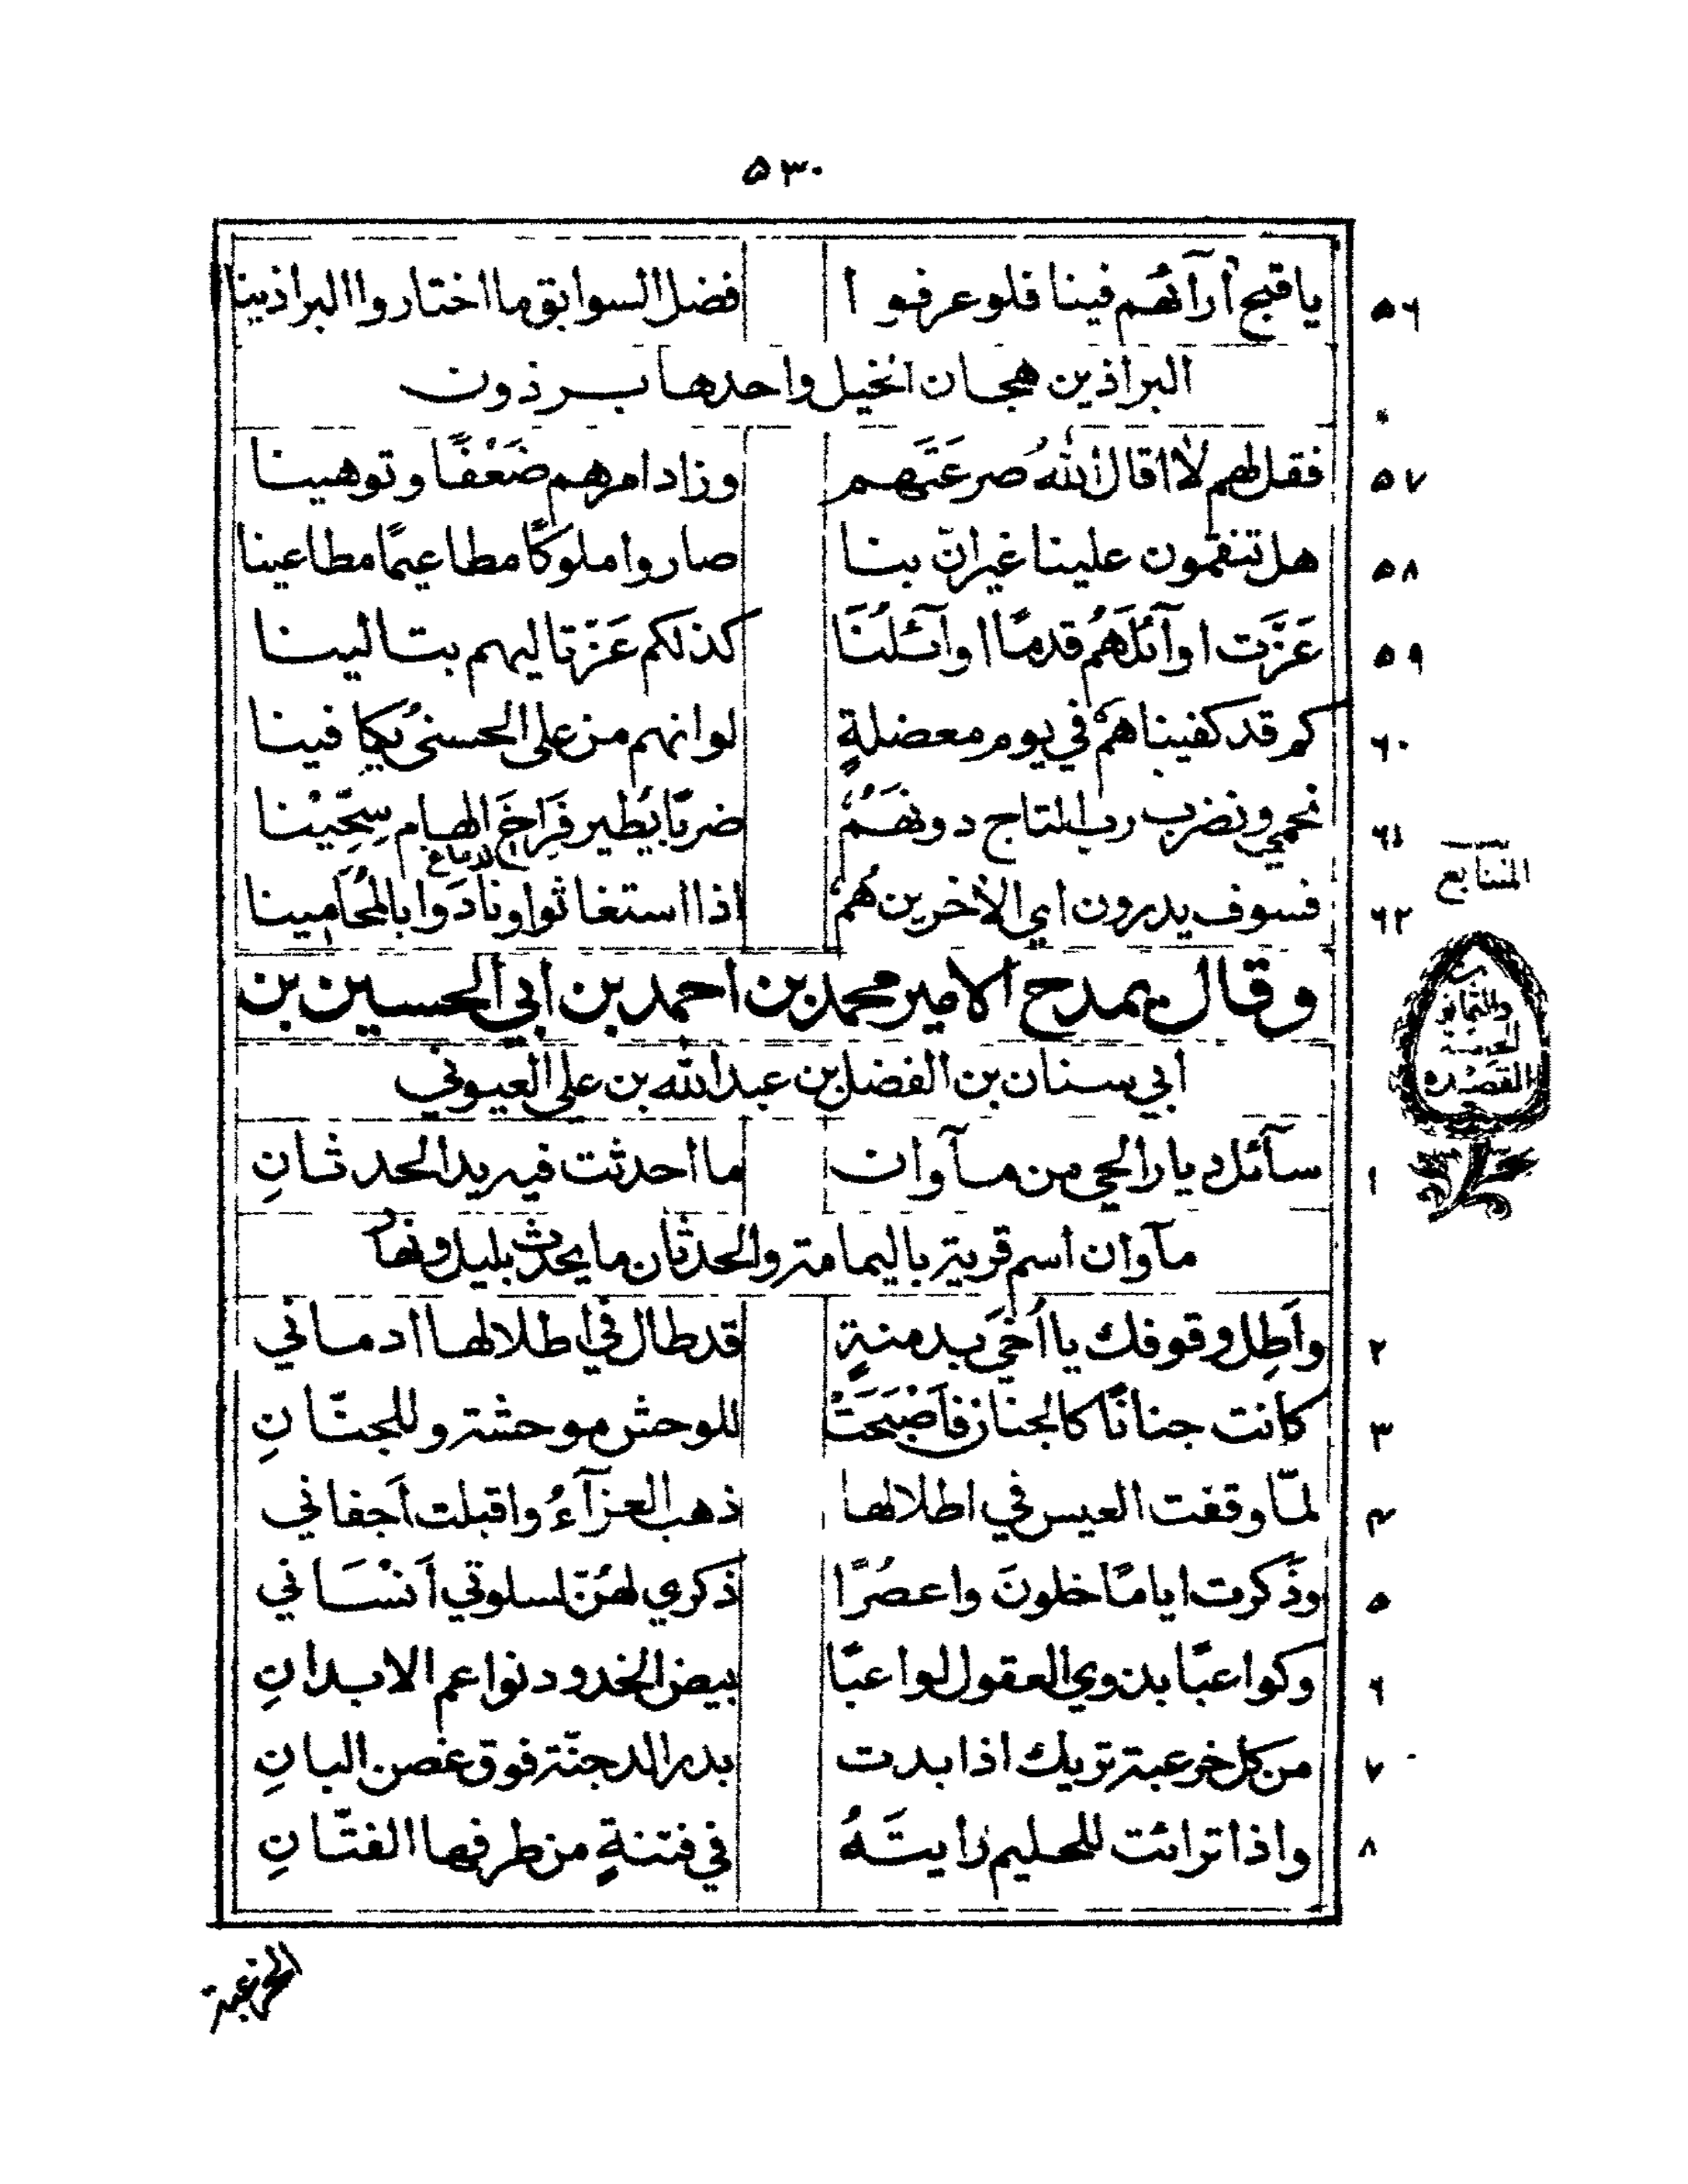 ۵۳۰
یا قبح اَرآئهُم فینا فلو عرفوا فضل السوابق ما اختاروا البراذینا ۵۶
البراذین هجان الخیل واحدها برذون
فقل لهم لا اقال اللهُ صرعَتَهم وزاد امرهم ضَعْفًا وتوهینا ۵۷
هل تنقمون علینا غیر انّ بنا صاروا ملوکًا مطاعیمًا مطاعینا ۵۸
عَزَّت اوآئلَهُم قدمًا اوآئلُنَا کذلکم عَزّ تالیهم بتالینا ۵۹
کم قد کفیناهمُ في یوم معضلةٍ لو انهم من علی الحسنیٰ یُکافینا ۶۰
نحمي ونضرب رب التاج دونهَمُ ضربًا یُطیر فَرَاخَ الهام سِجِّیْنا ۶۱
الدماغ
فسوف یدرون اي الاخرین هُمُ اذا استغاثوا ونادَوا بالمُحَامینا ۶۲
السابع
والثمانون
القصیدة
وقال یمدح الامیر محمد بن احمد بن ابي الحسین بن
ابي سنان بن الفضل بن عبد الله بن علي العیوني
سآئل دیار الحي من مآوان ما احدثت فیه ید الحدثانِ ۱
مآوان اسم قریة بالیمامة والحدثان ما یحدث بلیل ونهار
واَطِل وقوفك یا اُخَيَ بدمنةٍ قد طال في اطلالها ادماني ۲
کانت جنانًا کالجنان فاَصْبَحَتْ للوحش موحشة وللجنّانِ ۳
لمّا وقفت العیس في اطلالها ذهب العزآءُ واقبلت اَجفاني ۴
وذَکرت ایامًا خلونَ واعصُرًا ذکري لهُنّ لسلوتي اَنْسَاني ۵
وکواعبًا بذوي العقول لواعبًا بیض الخدود نواعم الابدانِ ۶
من کل خرعبة تریك اذا بدت بدر الدجنّة فوق غصن البانِ ۷
واذا ترائت للحلیم رایتَهُ في فتنةٍ من طرفها الفتّانِ ۸
الخرعبة